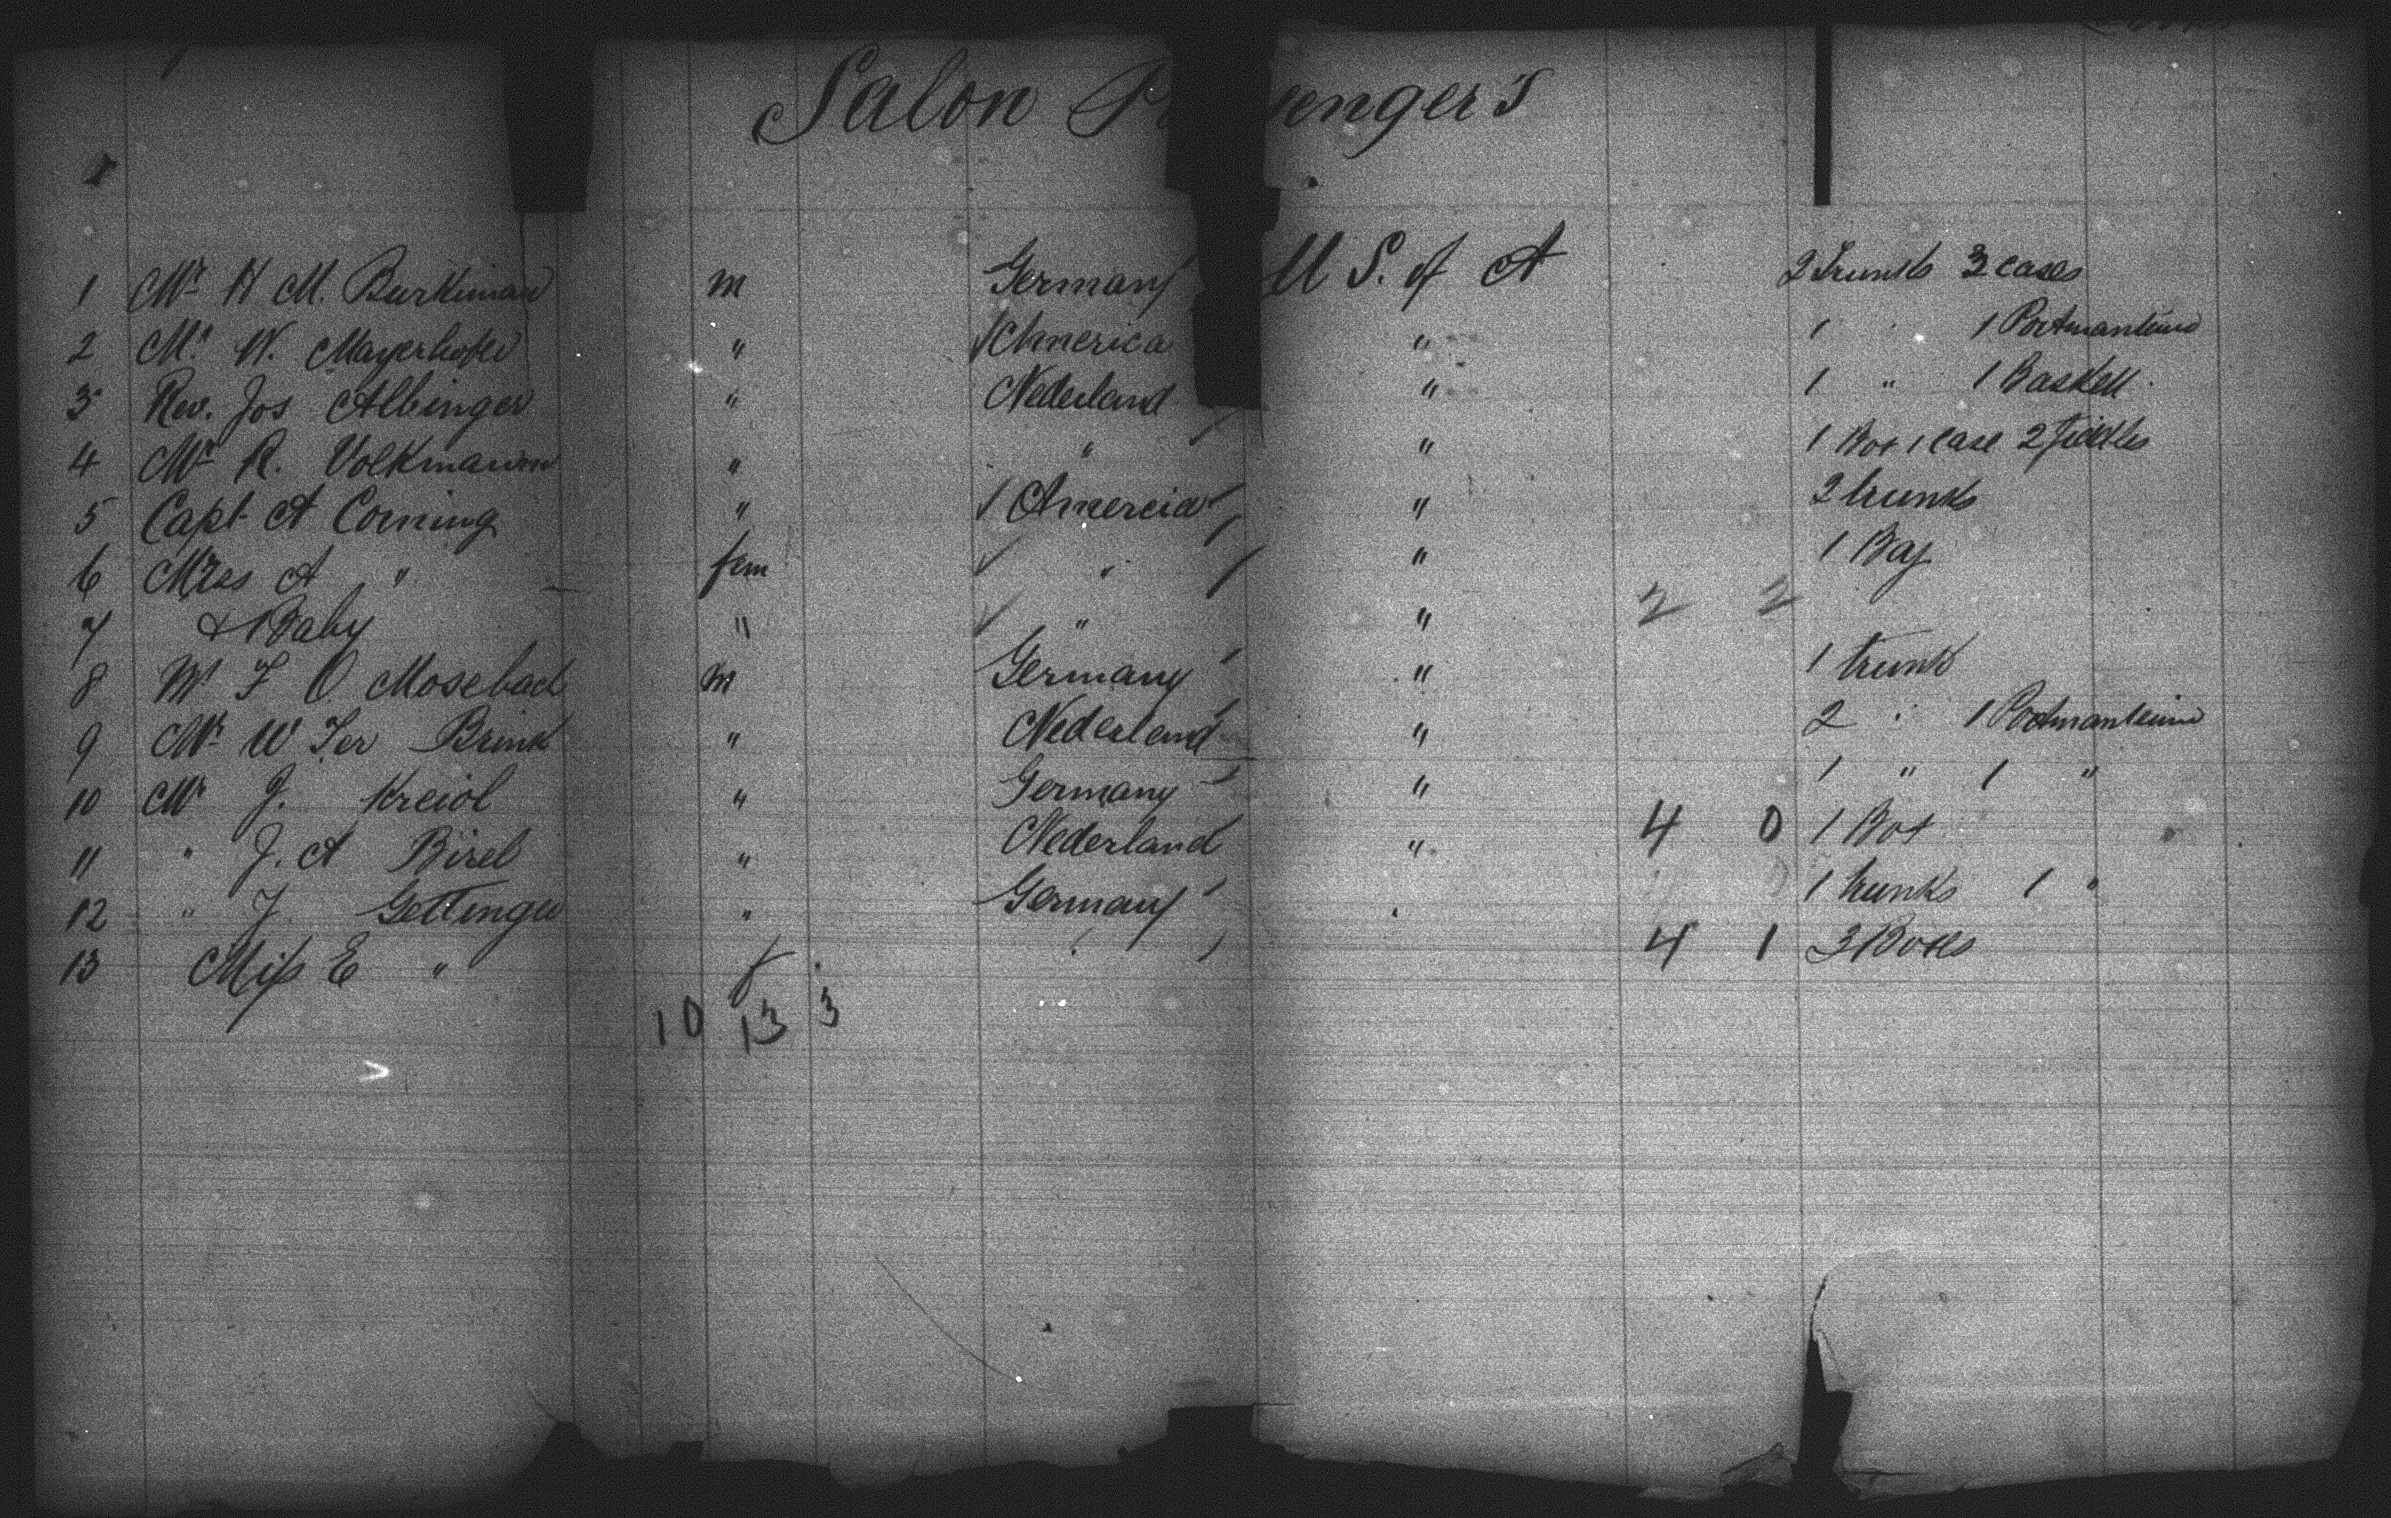 Salon P enger's
1 Mr H M. Burkiman m Germany U S. of A 2 Trunks 3 cases
2 Mr W. Mayerhofer " America " 1 1 Portmanteau
3 Rev. Jos Albinger " Nederland " 1 " 1 Baskett
4 Mr R. Volkmann " " " 1 Box 1 case 2
5 Capt A Corning " Amercia " 2 trunks
6 Mrss A " fem " " 1 Bag
7 & 1 Baby " " " 2 2
8 Mr F O Mosebach m Germany " 1 trunk
9 Mr W Ter Brink " Nederland " 2 " 1 Portmanteau
10 Mr J. Kreiol " Germany " 1 " 1 "
11 " J. A Birel " Nederland " 4 0 1 Box
12 " J Gettinger " Germany " 1 trunks 1 "
13 Miss E " f " 4 1 3 Boxes
10 13 3